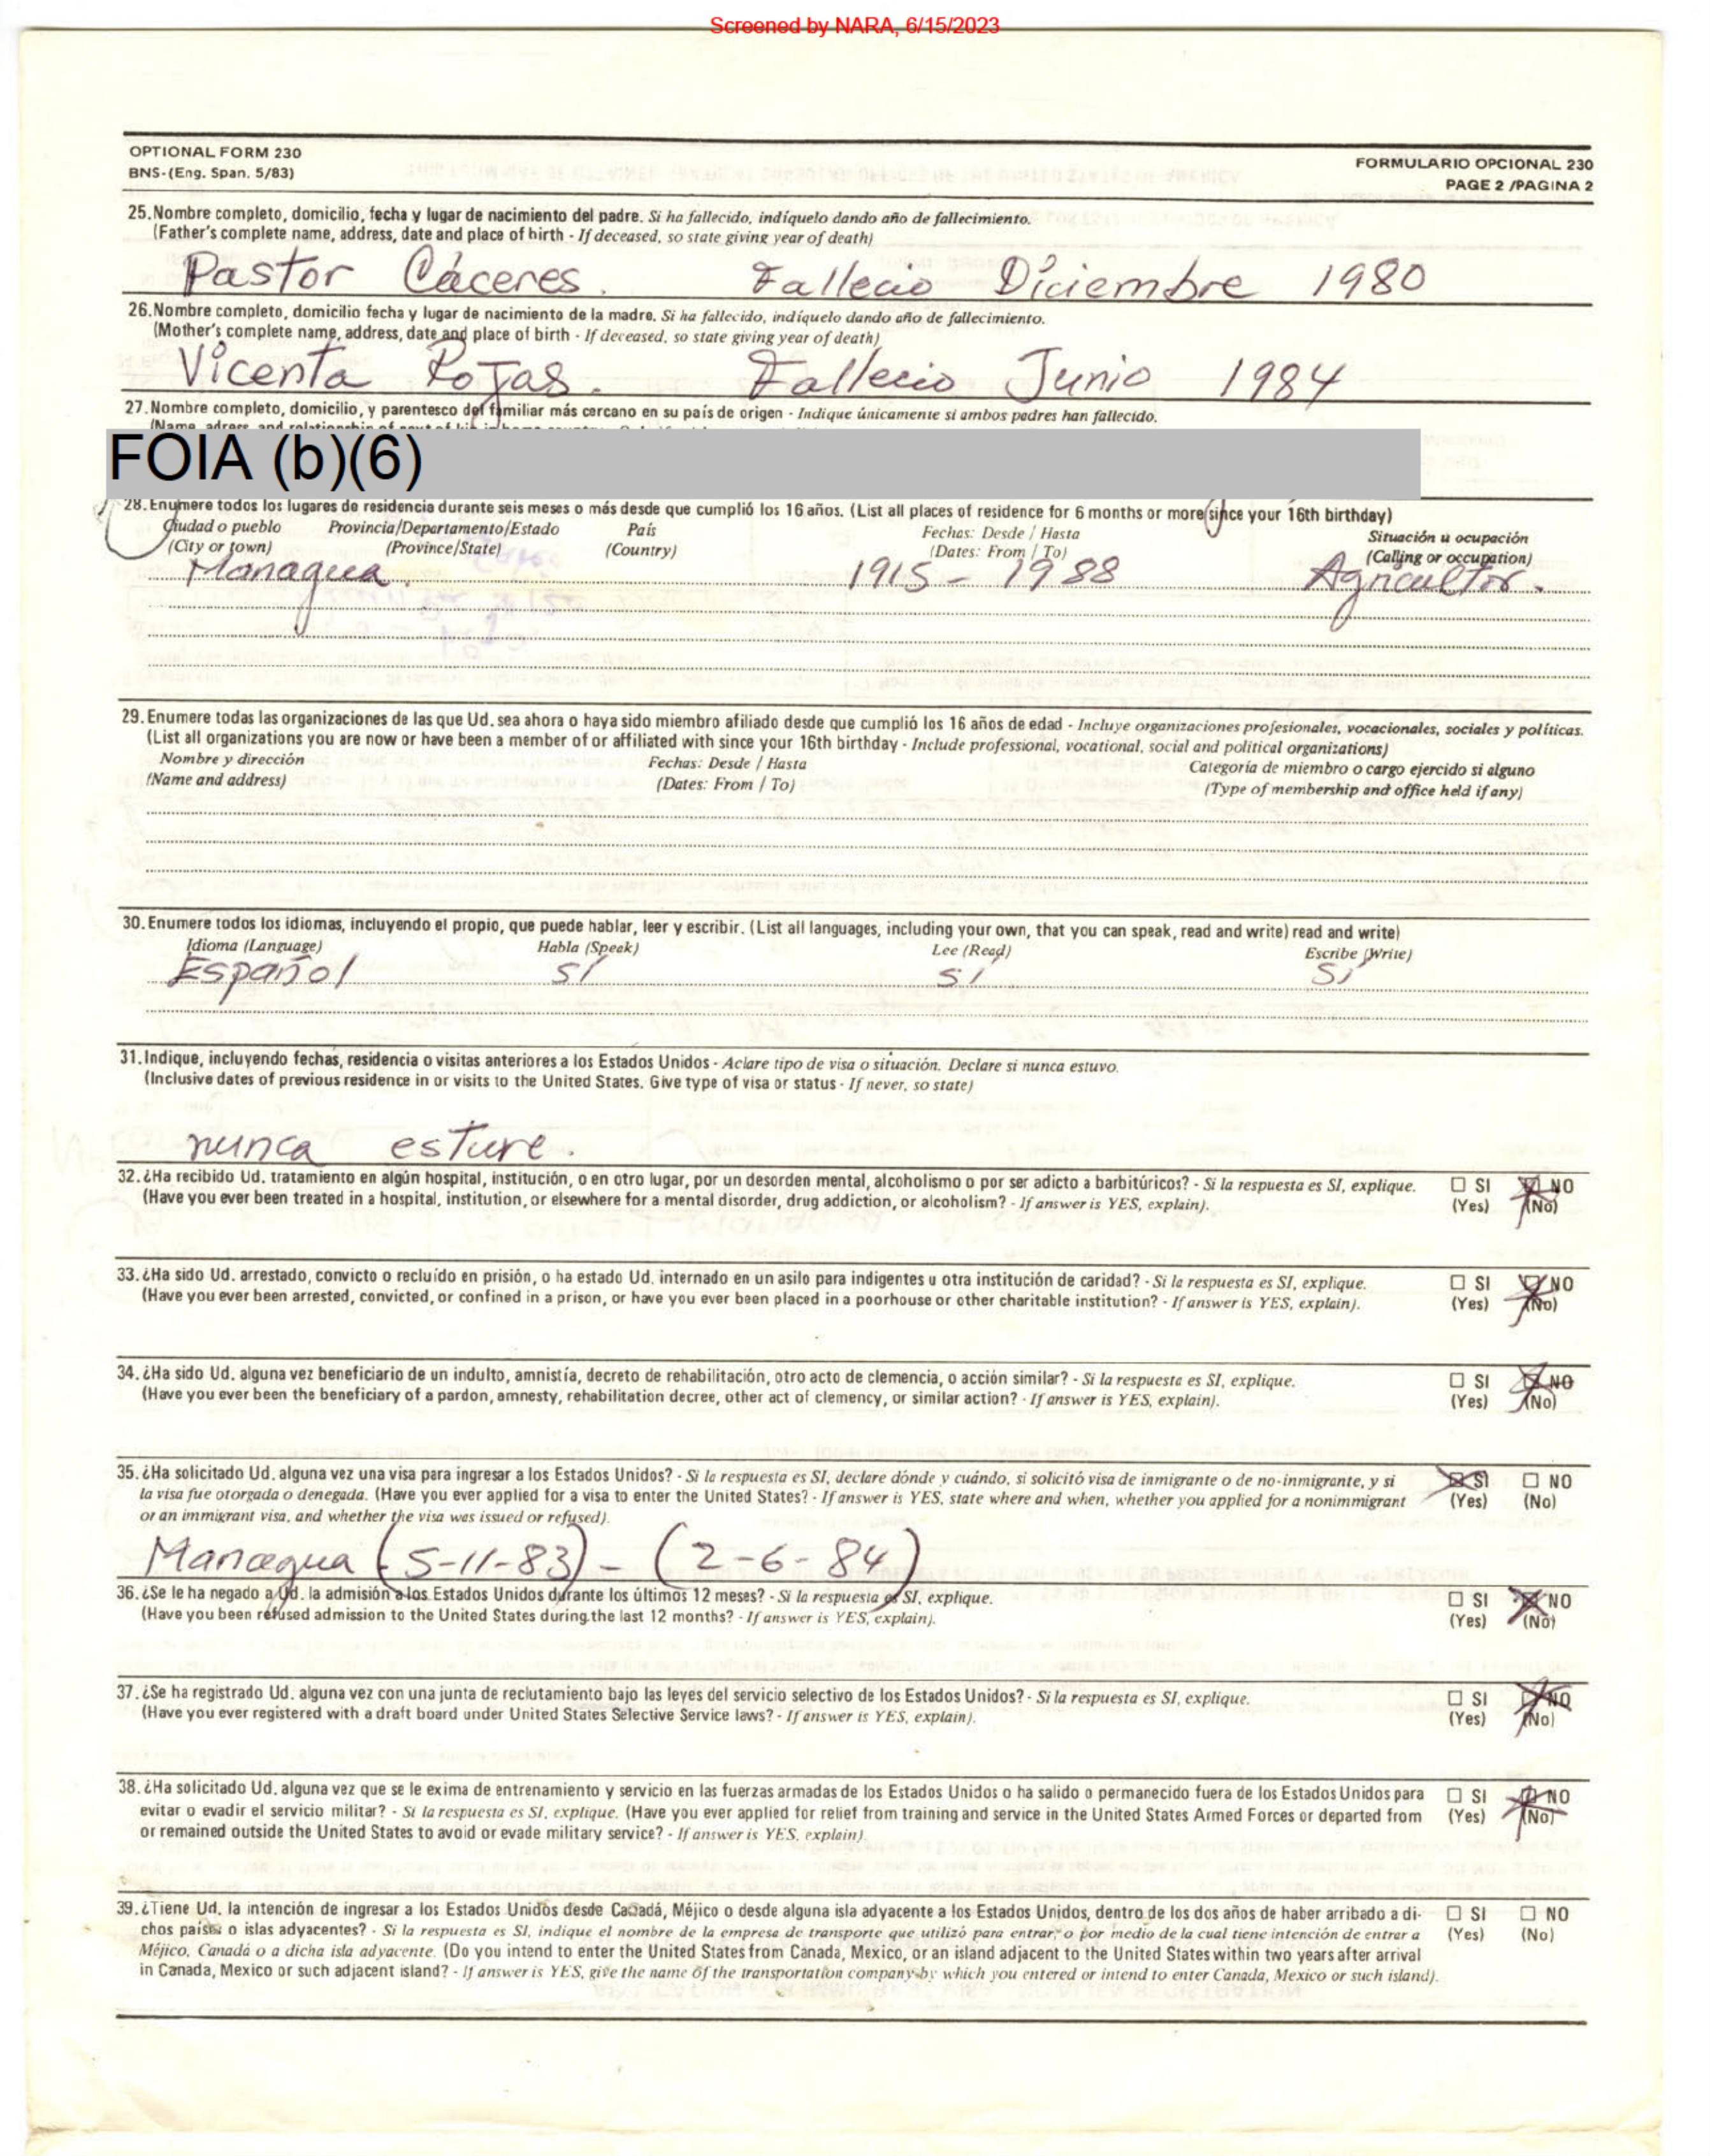 Screened by NARA, 6/15/2023
OPTIONAL FORM 230
BNS-(Eng. Span. 5/83)
FORMULARIO OPCIONAL 230
PAGE 2 /PAGINA 2
25. Nombre completo, domicilio, fecha y lugar de nacimiento del padre. Si ha fallecido, indíquelo dando año de fallecimiento.
(Father's complete name, address, date and place of birth - If deceased, so state giving year of death)
Pastor Cáceres. Fallecio Diciembre 1980
26. Nombre completo, domicilio fecha y lugar de nacimiento de la madre. Si ha fallecido, indíquelo dando año de fallecimiento.
(Mother's complete name, address, date and place of birth - If deceased, so state giving year of death)
Vicenta Rojas. Fallecio Junio 1984
27. Nombre completo, domicilio, y parentesco del familiar más cercano en su país de origen - Indique únicamente si ambos padres han fallecido.
FOIA (b)(6)
28. Enumere todos los lugares de residencia durante seis meses o más desde que cumplió los 16 años. (List all places of residence for 6 months or more since your 16th birthday)
Ciudad o pueblo Provincia/Departamento/Estado País Fechas: Desde / Hasta Situación u ocupación
(City or town) (Province/State) (Country) (Dates: From / To) (Calling or occupation)
Managua. 1915 - 1988 Agricultor.
29. Enumere todas las organizaciones de las que Ud. sea ahora o haya sido miembro afiliado desde que cumplió los 16 años de edad - Incluye organizaciones profesionales, vocacionales, sociales y políticas.
(List all organizations you are now or have been a member of or affiliated with since your 16th birthday - Include professional, vocational, social and political organizations)
Nombre y dirección Fechas: Desde / Hasta Categoría de miembro o cargo ejercido si alguno
(Name and address) (Dates: From / To) (Type of membership and office held if any)
30. Enumere todos los idiomas, incluyendo el propio, que puede hablar, leer y escribir. (List all languages, including your own, that you can speak, read and write) read and write)
Idioma (Language) Habla (Speak) Lee (Read) Escribe (Write)
Español sí sí sí
31. Indique, incluyendo fechas, residencia o visitas anteriores a los Estados Unidos - Aclare tipo de visa o situación. Declare si nunca estuvo.
(Inclusive dates of previous residence in or visits to the United States. Give type of visa or status - If never, so state)
nunca estuve.
32. ¿Ha recibido Ud. tratamiento en algún hospital, institución, o en otro lugar, por un desorden mental, alcoholismo o por ser adicto a barbitúricos? - Si la respuesta es SI, explique. SI NO
(Have you ever been treated in a hospital, institution, or elsewhere for a mental disorder, drug addiction, or alcoholism? - If answer is YES, explain). (Yes) (No)
33. ¿Ha sido Ud. arrestado, convicto o recluído en prisión, o ha estado Ud. internado en un asilo para indigentes u otra institución de caridad? - Si la respuesta es SI, explique. SI NO
(Have you ever been arrested, convicted, or confined in a prison, or have you ever been placed in a poorhouse or other charitable institution? - If answer is YES, explain). (Yes) (No)
34. ¿Ha sido Ud. alguna vez beneficiario de un indulto, amnistía, decreto de rehabilitación, otro acto de clemencia, o acción similar? - Si la respuesta es SI, explique. SI NO
(Have you ever been the beneficiary of a pardon, amnesty, rehabilitation decree, other act of clemency, or similar action? - If answer is YES, explain). (Yes) (No)
35. ¿Ha solicitado Ud. alguna vez una visa para ingresar a los Estados Unidos? - Si la respuesta es SI, declare dónde y cuándo, si solicitó visa de inmigrante o de no-inmigrante, y si SI NO
la visa fue otorgada o denegada. (Have you ever applied for a visa to enter the United States? - If answer is YES, state where and when, whether you applied for a nonimmigrant (Yes) (No)
or an immigrant visa, and whether the visa was issued or refused).
Managua (5-11-83) - (2-6-84)
36. ¿Se le ha negado a Ud. la admisión a los Estados Unidos durante los últimos 12 meses? - Si la respuesta es SI, explique. SI NO
(Have you been refused admission to the United States during the last 12 months? - If answer is YES, explain). (Yes) (No)
37. ¿Se ha registrado Ud. alguna vez con una junta de reclutamiento bajo las leyes del servicio selectivo de los Estados Unidos? - Si la respuesta es SI, explique. SI NO
(Have you ever registered with a draft board under United States Selective Service laws? - If answer is YES, explain). (Yes) (No)
38. ¿Ha solicitado Ud. alguna vez que se le exima de entrenamiento y servicio en las fuerzas armadas de los Estados Unidos o ha salido o permanecido fuera de los Estados Unidos para SI NO
evitar o evadir el servicio militar? - Si la respuesta es SI, explique. (Have you ever applied for relief from training and service in the United States Armed Forces or departed from (Yes) (No)
or remained outside the United States to avoid or evade military service? - If answer is YES, explain).
39. ¿Tiene Ud. la intención de ingresar a los Estados Unidos desde Canadá, Méjico o desde alguna isla adyacente a los Estados Unidos, dentro de los dos años de haber arribado a di- SI NO
chos países o islas adyacentes? - Si la respuesta es SI, indique el nombre de la empresa de transporte que utilizó para entrar, o por medio de la cual tiene intención de entrar a (Yes) (No)
Méjico, Canadá o a dicha isla adyacente. (Do you intend to enter the United States from Canada, Mexico, or an island adjacent to the United States within two years after arrival
in Canada, Mexico or such adjacent island? - If answer is YES, give the name of the transportation company by which you entered or intend to enter Canada, Mexico or such island).